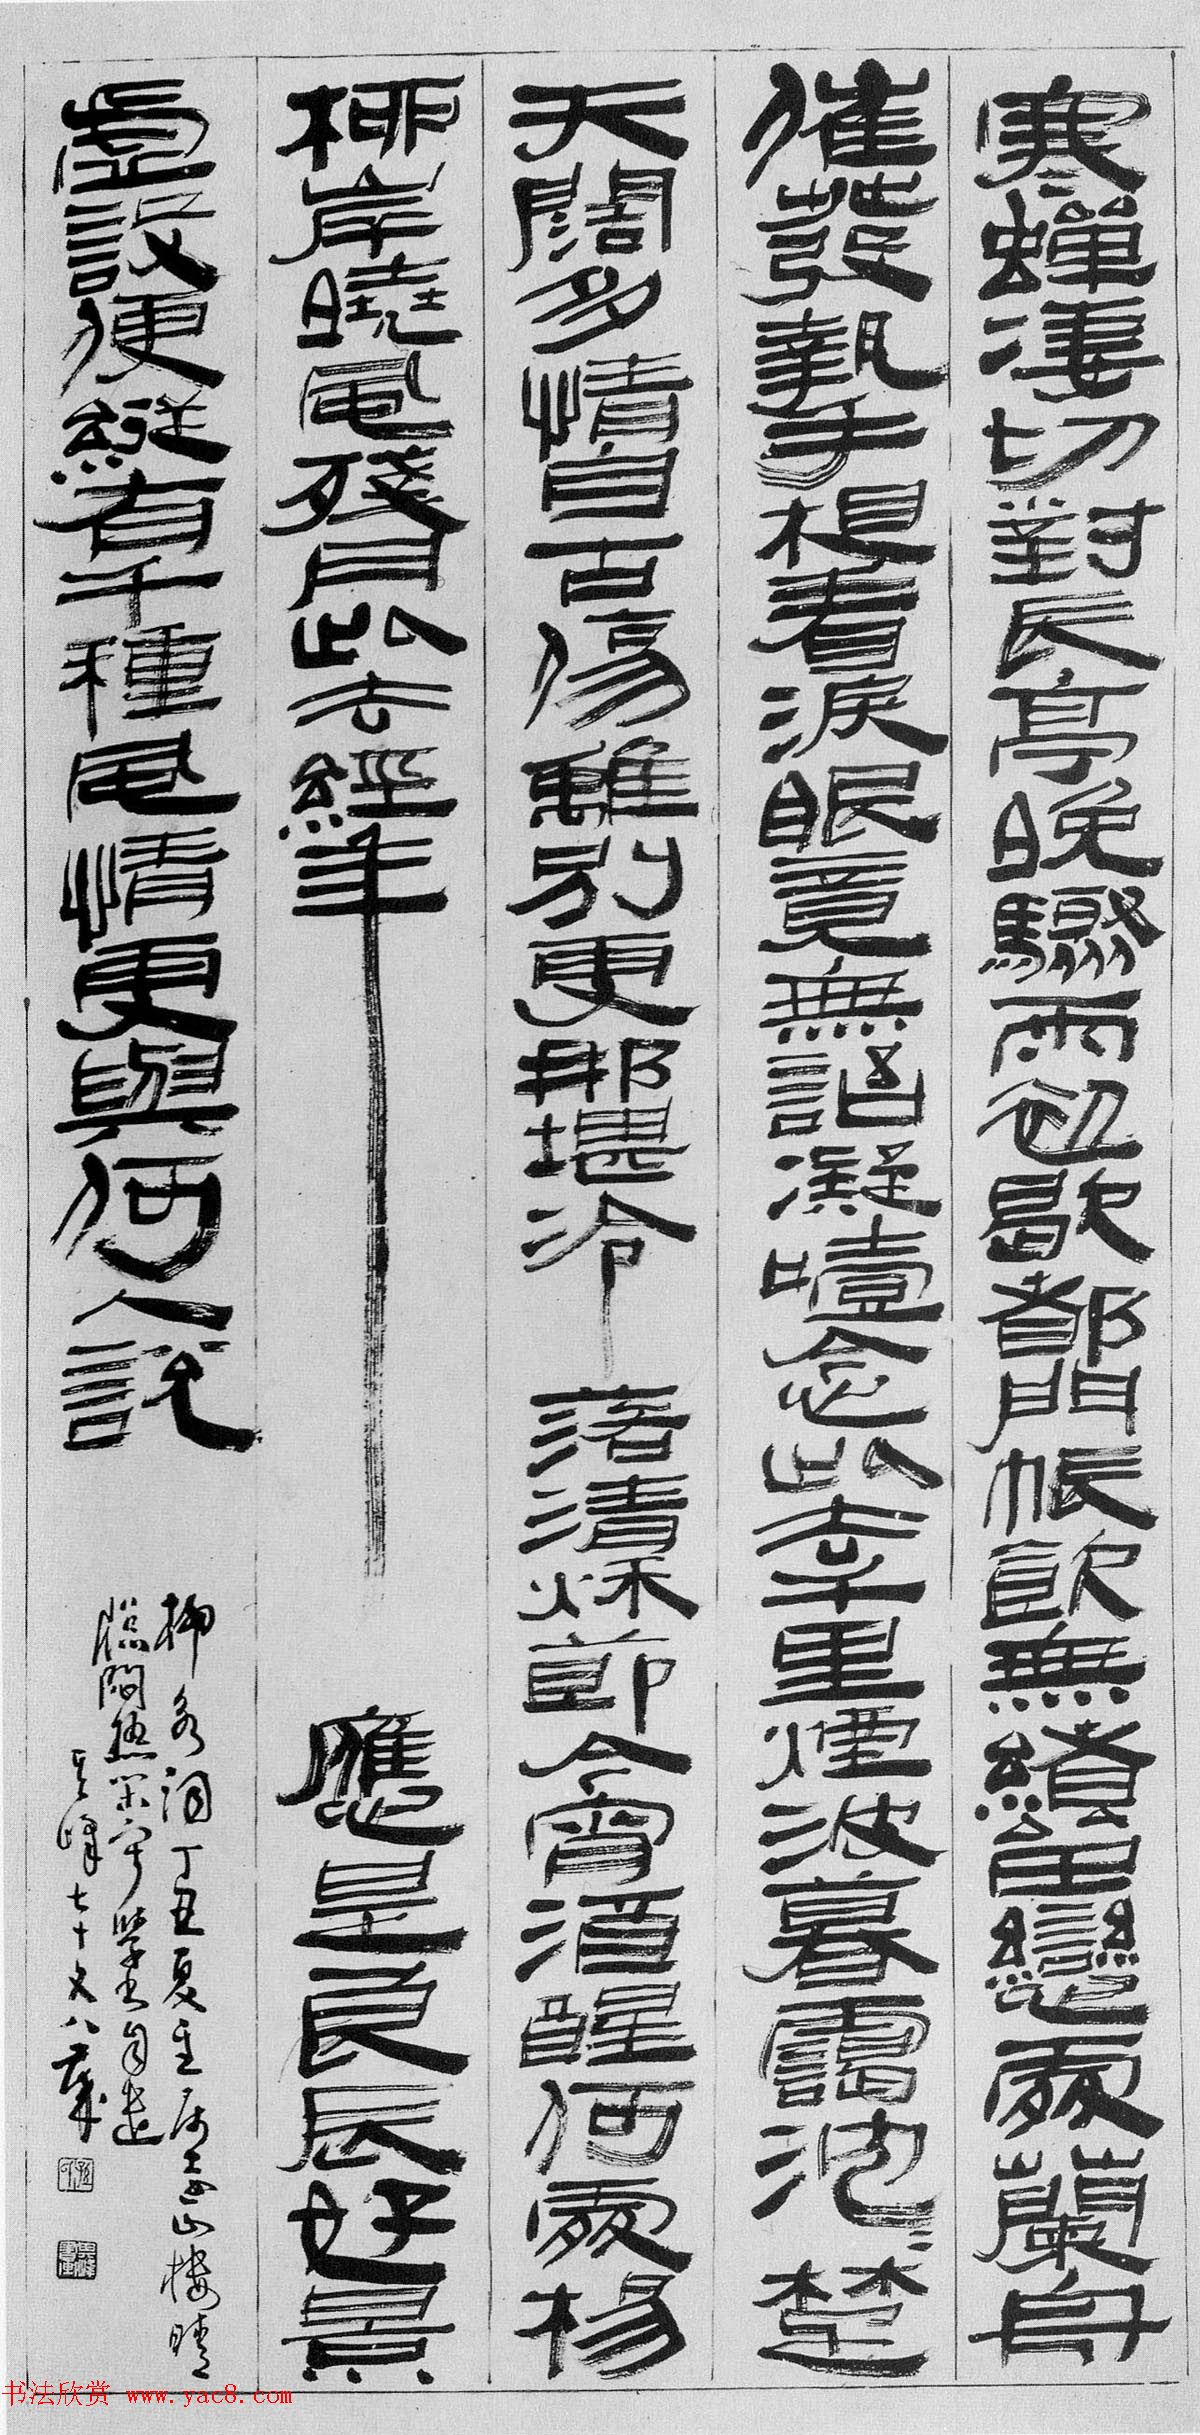 寒蟬淒切對長亭晚驟雨初歇都門帳飲無緒留戀處蘭舟
催發執手相看淚眼竟無語凝噎念此去千里煙波暮靄沈〻楚
天闊多情自古傷離別更那堪冷落清秋節今宵酒醒何處楊
柳岸曉風殘月此去經年應是良辰好景
虛設便縱有千種風情更與何人說
柳永詞丁丑夏至山樓晴
學書自遣
其峰七十又八歲
书法欣赏 www.yac8.com